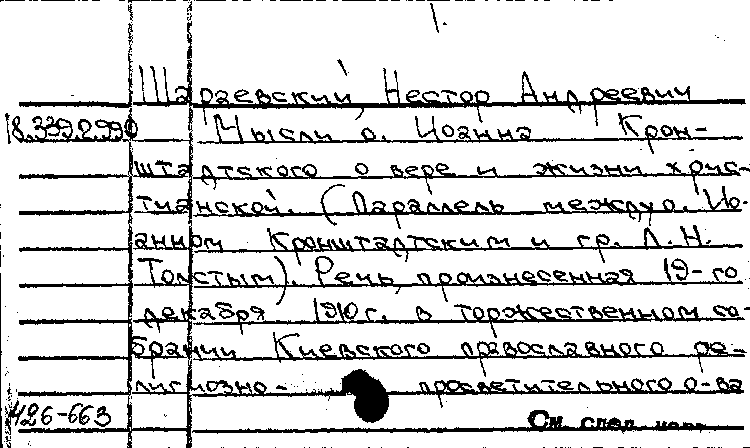 1.
Шараевский, Нестор Андреевич
18.339.2.990 Мысли о. Иоанна Крон-
штадтского о вере и жизни хрис-
тианской. (Параллель между о. Ио-
анном Кронштадтским и гр. Л.Н.
Толстым). Речь, произнесенная 19-го
декабря 1910 г. в торжественном со-
брании Киевского православного ре-
лигиозно-просветительного о-ва
426-663 См. след. карт.